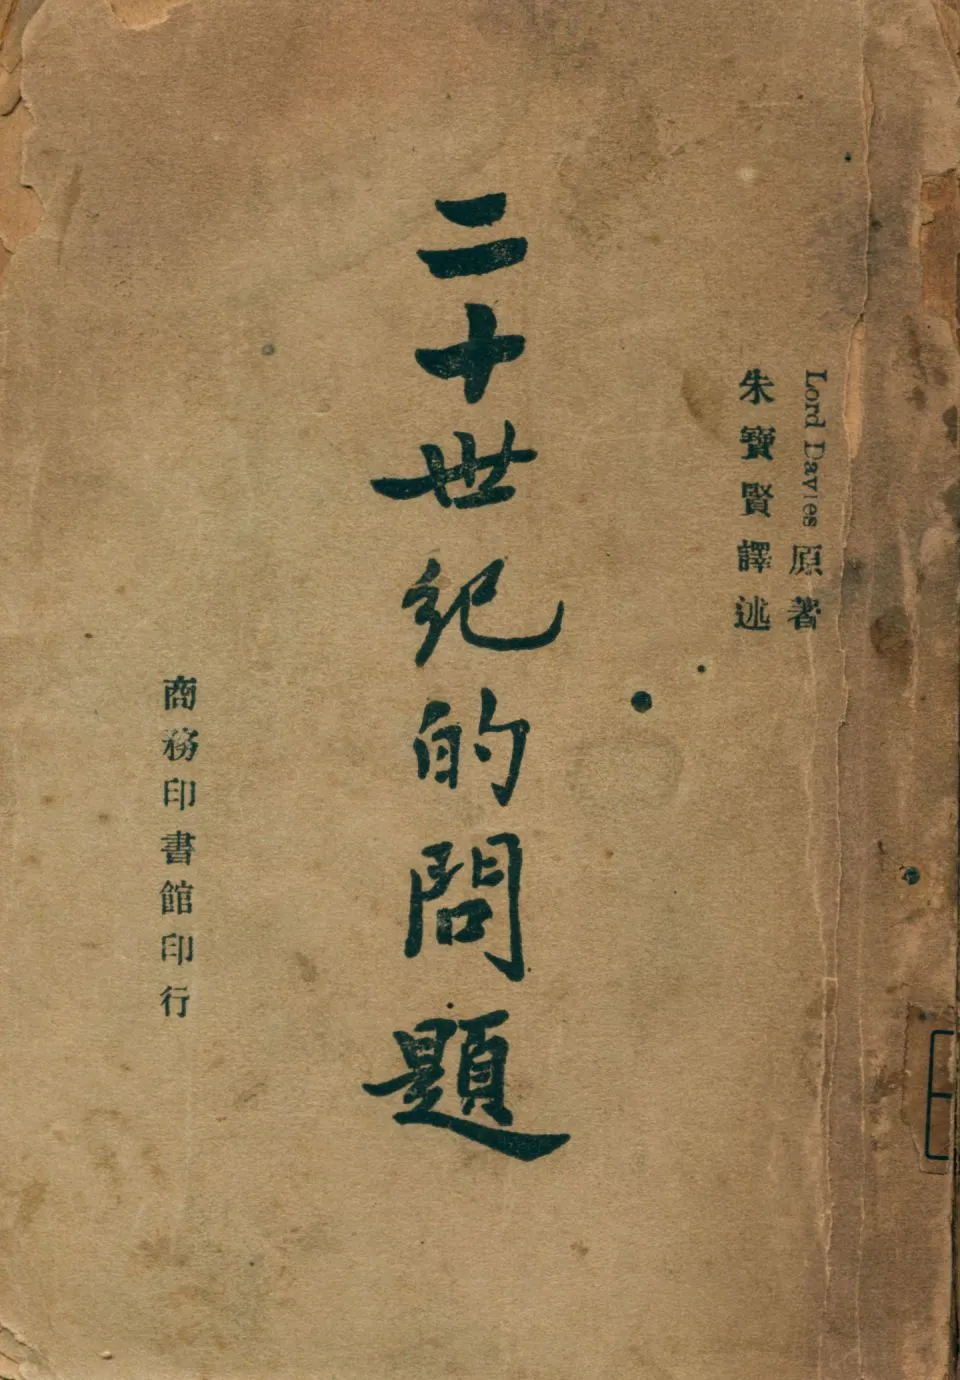 Lord Davies 原著
朱寶賢譯述
二十世紀的問題
商務印書館印行